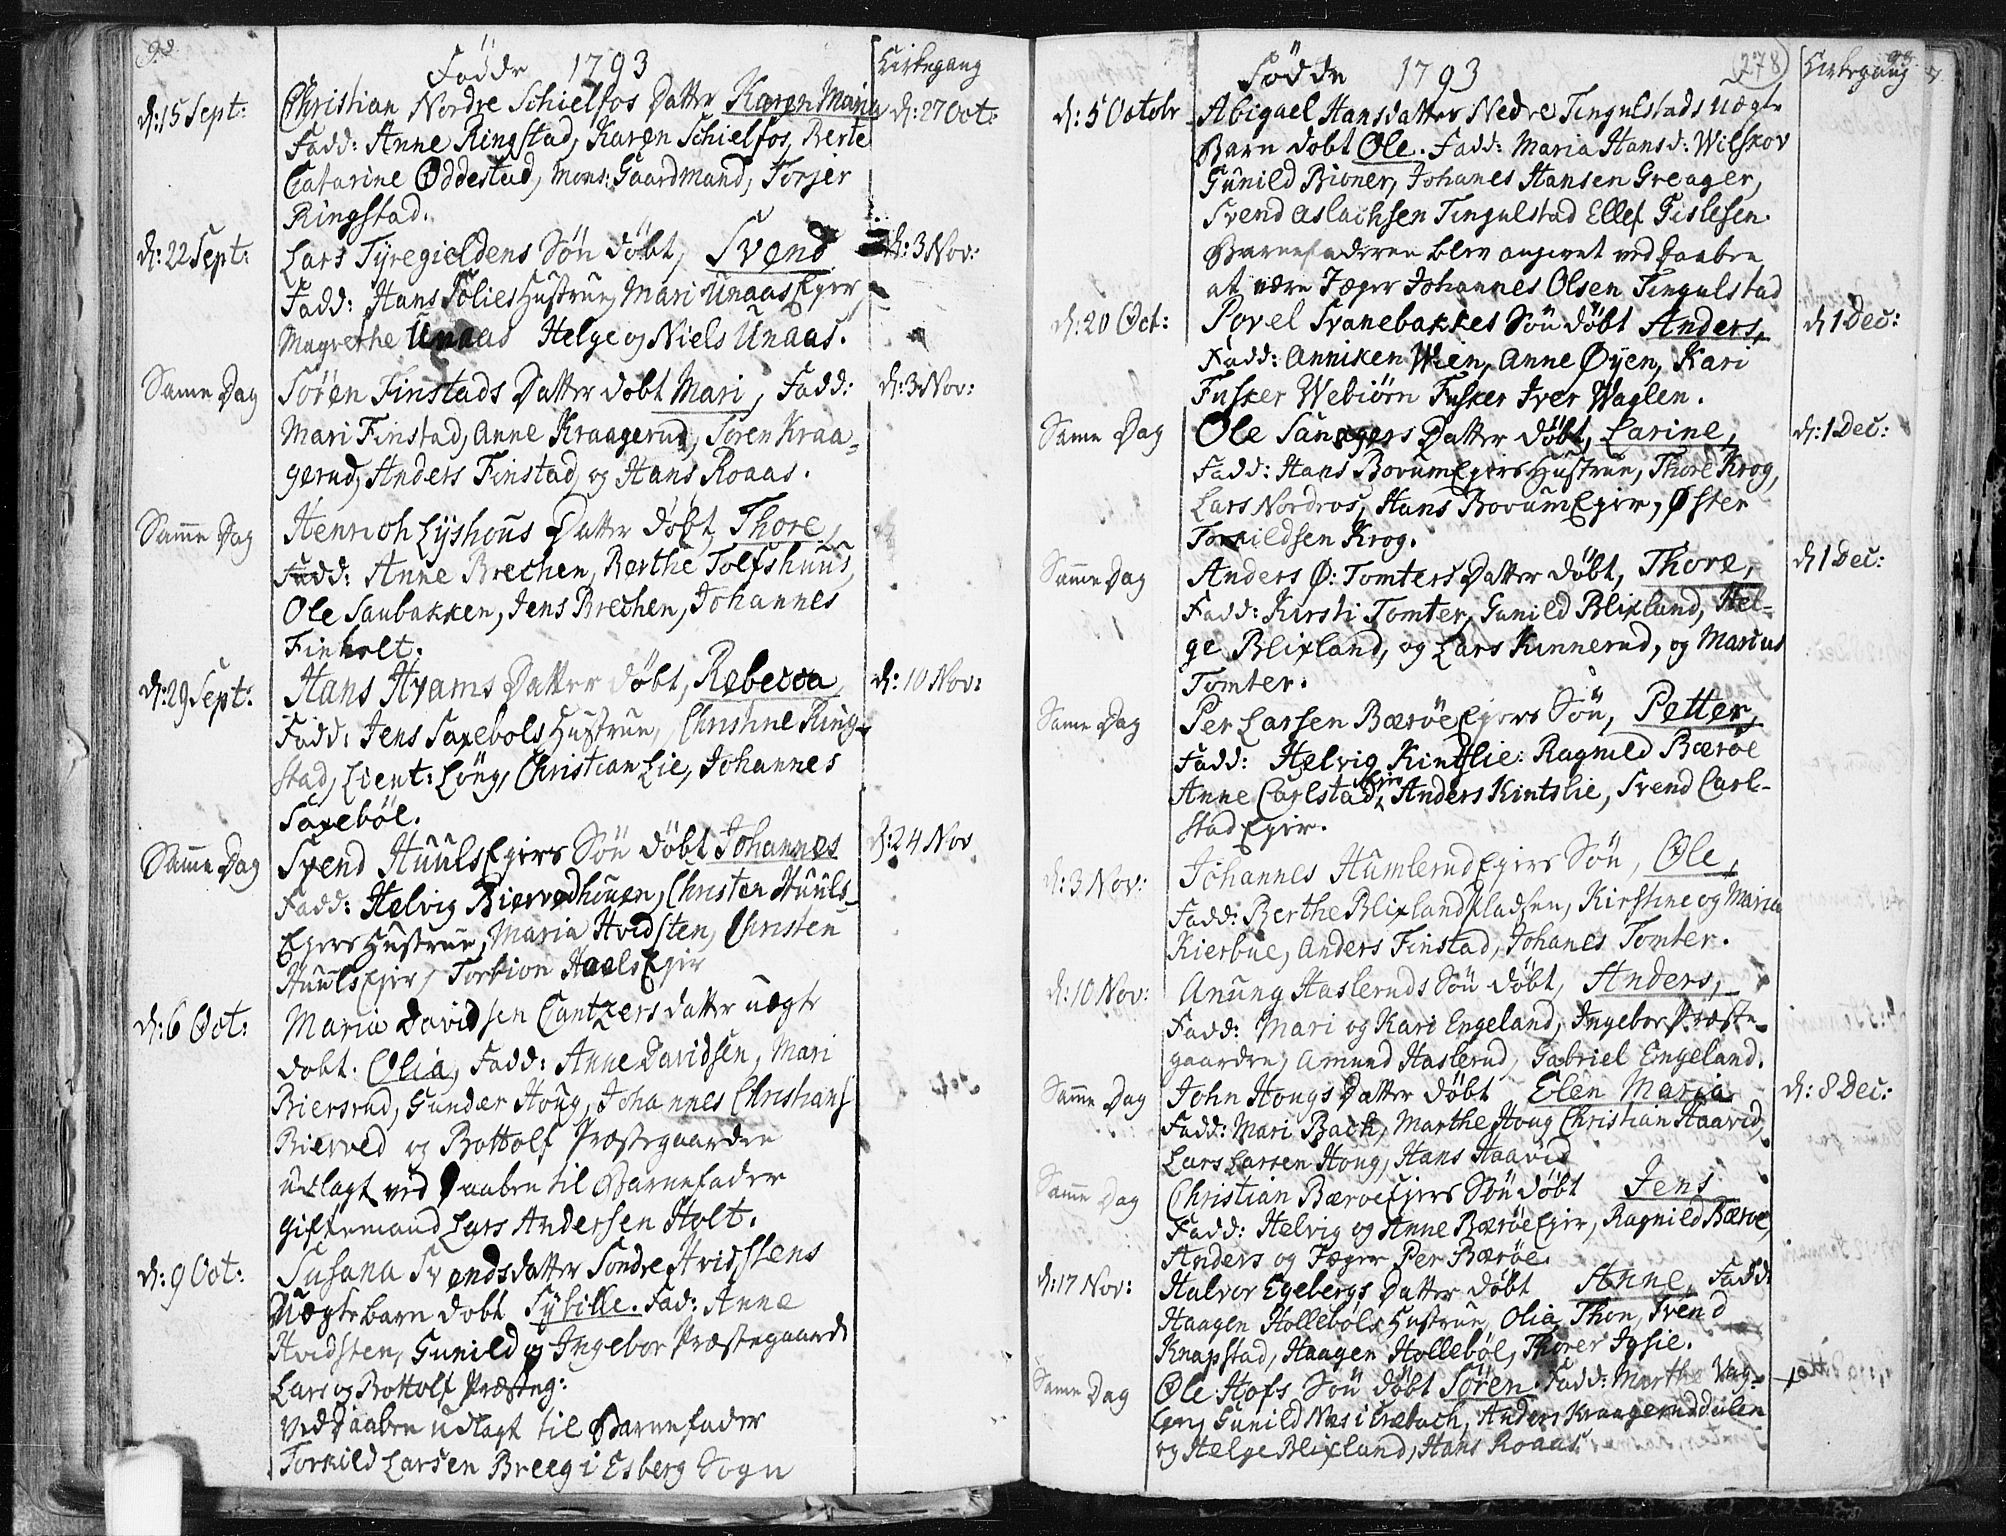 92.
Fødde 1793
Kirkegang
d: 15 Sept: Christian Nordre Schielfos Datter Karen Maria d: 27 Oct:
Fadd: Anne Ringstad, Karen Schielfos, Berte
Catarine Oddestad, Mons: Gaardmand, Torjer
Ringstad.
d: 22 Sept: Lars Tyregieldens Søn døbt, Svend d: 3 Nov:
Fadd: Hans Solies Hustrue, Mari UnaasEyer
Magrethe Unaas Helge og Niels Unaas.
Samme Dag Søren Finstads Datter døbt Mari, Fadd: d: 3 Nov:
Mari Finstad, Anne Kraagerud, Søren Kraa-
gerud, Anders Finstad, og Hans Roaas.
Samme Dag Henrich Lyshous Datter døbt, Thore,
Fadd: Anne Brechen, Berthe Tolfshuus,
Ole Saubakken, Jens Brechen, Johannes
Finholt.
d: 29 Sept: Hans Hvams Datter døbt, Rebecca, d: 10 Nov:
Fadd: Jens Saxebøls Hustrue, Christine Ring-
stad, Lieut: Løng, Christian Lie, Johannes
Saxebøl.
Samme Dag Svend HuulsEjers Søn døbt Johannes d: 24 Nov
Fadd: Helvig Biervedhouen, Christen Huuls-
Ejers Hustrue, Maria Hvidsten, Christen
HuulsEjer, Torbion HaelsEjer
d: 6 Oct: Maria Davidsen Cantzers datter uægte
døbt. Olia, Fadd: Anne Davidsen, Mari
Biersrud, Gunder Houg, Johannes Christians
Bierved og Bottolf Præstegaarden
udlagt ved Daaben til Barnefader
giftemand Lars Andersen Holt.
d: 9 Oct: Susana Svendsdatter Søndre Hvidstens
Uægte barn døbt Sybille. Fad: Anne
Hvidsten, Gunild og Ingebor Præstegaard
Lars og Bottolf Præsteg:
ved Daaben udlagt til Barnefader
Torkild Larsen Breeg i Esberg Sogn
278
93
Fødde 1793
Kirkegang
d: 5 Octobr Abigael Hansdatter Nedre Tingulstads uægte
Barn døbt Ole. Fadd: Maria Hansd: Wilskov
Gunild Bioner, Johanes Hansen Greager,
Svend Aslachsen Tingulstad Ellef Gislesen.
Barnefaderen blev angivet ved Daaben
at være Jæger Johannes Olsen Tingulstad
d: 20 Oct: Povel Svanebakkes Søn døbt Anders, d 1 Dec:
Fadd: Anniken Wien, Anne Øyen, Kari
Fusker Webiørn Fusker Iver Waglen.
Samme Dag Ole Sanagers Datter døbt, Larine, d: 1 Dec:
Fadd: Hans BovumEjers Hustrue, Thore Krog,
Lars Nordros, Hans BovumEjer, Østen
Torkildsen Krog.
Samme Dag Anders Ø: Tomters Datter døbt, Thore, d 1 Dec:
Fadd: Kirsti Tomter, Gunild Blixland, Hel-
ge Blixland, og Lars Kinnerud, og Marcus
Tomter.
Samme Dag Per Larsen BærøeEjers Søn, Petter,
Fadd: Helvig Kintslie: Ragnild Bærøe
Anne Carlstad Ejer, Anders Kintslie, Svend Carl-
stadEjer.
d: 3 Nov: Johannes HumlerudEjers Søn, Ole,
Fadd: Berthe Blixland Pladsen, Kirstine og Maria
Kierbue, Anders Finstad, Johanes Tomter.
d: 10 Nov: Anung Haslernds Søn døbt, Anders,
Fadd: Mari og Kari Engeland, Ingebor Præste-
gaarden, Amund Haslerud, Gabriel Engeland.
Samme Dag John Hougs Datter døbt Elen Maria d: 8 Dec:
Fadd: Mari Bach, Marthe Houg Christian Haavid,
Lars Larsen Houg, Hans Haavid
Samme Dag Christian BærøeEjers Søn døbt Jens
Fadd: Helvig og Anne BærøeEjer, Ragnild Bærøe,
Anders og Jæger Per Bærøe.
d: 17 Nov: Halvor Egebergs Datter døbt Anne, Fadd:
Haagen Hollebøls Hustrue, Olia Thon, Svend
Knapstad, Haagen Hollebøl, Thorer Igsie.
Samme Dag Ole Hofs Søn døbt Søren. Fadd: Marthe Vag-
len, Gunild Næs i Træbach, Anders Kraagerud
og Helge Blixland, Hans Roaas.